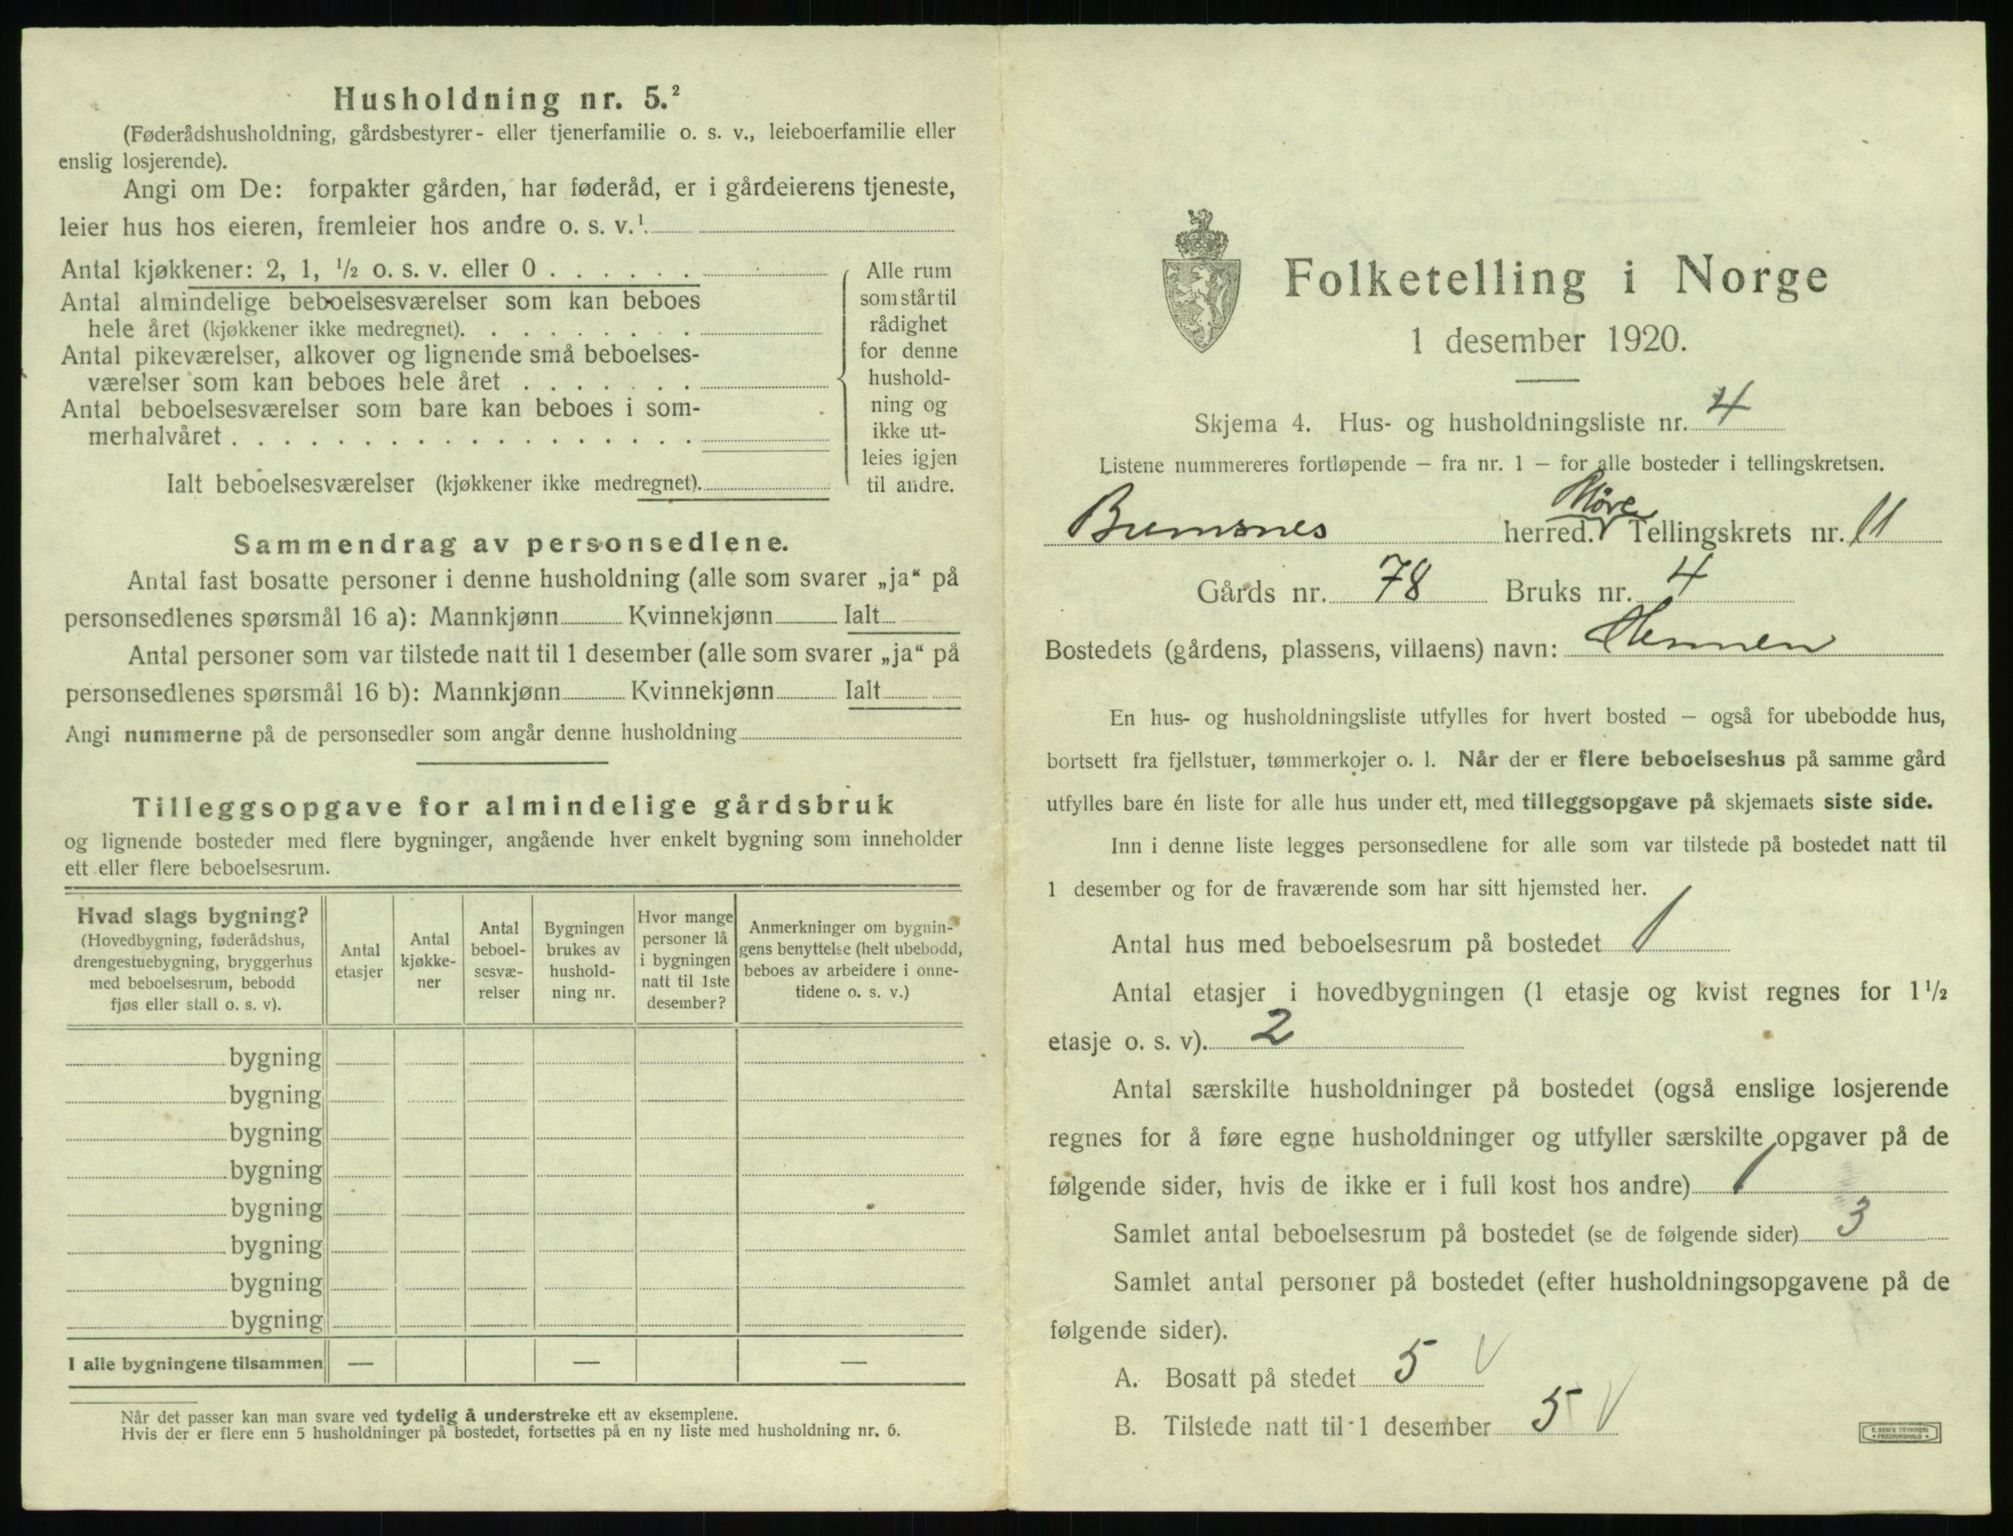 Husholdning nr. 5.²
(Føderådshusholdning, gårdsbestyrer- eller tjenerfamilie o. s. v., leieboerfamilie eller
enslig losjerende).
Angi om De: forpakter gården, har føderåd, er i gårdeierens tjeneste,
leier hus hos eieren, fremleier hos andre o. s. v.¹
Antal kjøkkener: 2, 1, ½ o. s. v. eller 0 . . . . . .
Antal almindelige beboelsesværelser som kan beboes
hele året (kjøkkener ikke medregnet). . . . . . . . .
Antal pikeværelser, alkover og lignende små beboelses-
værelser som kan beboes hele året . . . . . . .
Antal beboelsesværelser som bare kan beboes i som-
merhalvåret . . . . . . . . . . . . . . . . . .
Ialt beboelsesværelser (kjøkkener ikke medregnet).
Alle rum
som står til
rådighet
for denne
hushold-
ning og
ikke ut-
leies igjen
til andre.
Sammendrag av personsedlene.
Antal fast bosatte personer i denne husholdning (alle som svarer „ja“ på
personsedlenes spørsmål 16 a): Mannkjønn Kvinnekjønn Ialt
Antal personer som var tilstede natt til 1 desember (alle som svarer „ja“ på
personsedlenes spørsmål 16 b): Mannkjønn Kvinnekjønn Ialt
Angi nummerne på de personsedler som angår denne husholdning
Tilleggsopgave for almindelige gårdsbruk
og lignende bosteder med flere bygninger, angående hver enkelt bygning som inneholder
ett eller flere beboelsesrum.
Hvad slags bygning?
(Hovedbygning, føderådshus,
drengestuebygning, bryggerhus
med beboelsesrum, bebodd
fjøs eller stall o. s. v).
Antal
etasjer
Antal
kjøkke-
ner
Antal
beboel-
sesvæ-
relser
Bygningen
brukes av
hushold-
ning nr.
Hvor mange
personer lå
i bygningen
natt til 1ste
desember?
Anmerkninger om bygnin-
gens benyttelse (helt ubebodd,
beboes av arbeidere i onne-
tidene o. s. v.)
bygning
bygning
bygning
bygning
bygning
bygning
bygning
bygning
I alle bygningene tilsammen — — —
Når det passer kan man svare ved tydelig å understreke ett av eksemplene.
Hvis der er flere enn 5 husholdninger på bostedet, fortsettes på en ny liste med husholdning nr. 6.
Folketelling i Norge
1 desember 1920.
Skjema 4. Hus- og husholdningsliste nr. 4
Listene nummereres fortløpende – fra nr. 1 – for alle bosteder i tellingskretsen.
Møre
Bremsnes herred. Tellingskrets nr. 11
Gårds nr. 78 Bruks nr. 4
Bostedets (gårdens, plassens, villaens) navn: Hennen
En hus- og husholdningsliste utfylles for hvert bosted – også for ubebodde hus,
bortsett fra fjellstuer, tømmerkojer o. l. Når der er flere beboelseshus på samme gård
utfylles bare én liste for alle hus under ett, med tilleggsopgave på skjemaets siste side.
Inn i denne liste legges personsedlene for alle som var tilstede på bostedet natt til
1 desember og for de fraværende som har sitt hjemsted her.
Antal hus med beboelsesrum på bostedet 1
Antal etasjer i hovedbygningen (1 etasje og kvist regnes for 1½
etasje o. s. v). 2
Antal særskilte husholdninger på bostedet (også enslige losjerende
regnes for å føre egne husholdninger og utfyller særskilte opgaver på de
følgende sider, hvis de ikke er i full kost hos andre) 1
Samlet antal beboelsesrum på bostedet (se de følgende sider) 3
Samlet antal personer på bostedet (efter husholdningsopgavene på de
følgende sider).
A. Bosatt på stedet 5 V
B. Tilstede natt til 1 desember 5 V
E. SEM'S TRYKKERI
FREDRIKSHALD